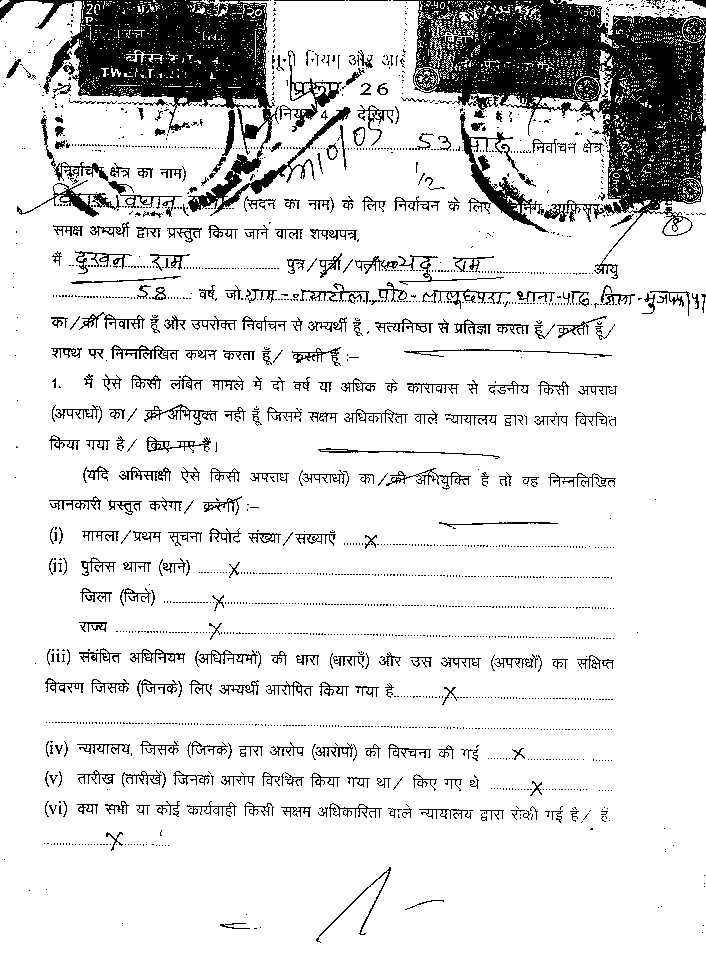 प्ररूप 26
(नियम 4 देखिए)
53 पारू निर्वाचन क्षेत्र
(निर्वाचन क्षेत्र का नाम)
बिहार विधान (सदन का नाम) के लिए निर्वाचन के लिए रिटर्निंग आफिसर
समक्ष अभ्यर्थी द्वारा प्रस्तुत किया जाने वाला शपथपत्र,
मैं दुखन राम पुत्र/पुत्री/पत्नी यदु राम आयु
58 वर्ष, जो ग्राम - पो०- लालूछपरा, थाना-पारू, जिला -
का/की निवासी हूँ और उपरोक्त निर्वाचन से अभ्यर्थी हूँ, सत्यनिष्ठा से प्रतिज्ञा करता हूँ/करती हूँ/
शपथ पर निम्नलिखित कथन करता हूँ/ करती हूँ :–
1. मैं ऐसे किसी लंबित मामले में दो वर्ष या अधिक के कारावास से दंडनीय किसी अपराध
(अपराधों) का/ की अभियुक्त नही हूँ जिसमें सक्षम अधिकारिता वाले न्यायालय द्वारा आरोप विरचित
किया गया है/ किए गए हैं।
(यदि अभिसाक्षी ऐसे किसी अपराध (अपराधों) का/की अभियुक्ति है तो वह निम्नलिखित
जानकारी प्रस्तुत करेगा/ करेगी) :–
(i) मामला/प्रथम सूचना रिपोर्ट संख्या/संख्याएँ X
(ii) पुलिस थाना (थाने) X
जिला (जिले) X
राज्य X
(iii) संबंधित अधिनियम (अधिनियमों) की धारा (धाराएँ) और उस अपराध (अपराधों) का संक्षिप्त
विवरण जिसके (जिनके) लिए अभ्यर्थी आरोपित किया गया है X
(iv) न्यायालय, जिसके (जिनके) द्वारा आरोप (आरोपों) की विरचना की गई X
(v) तारीख (तारीखें) जिनको आरोप विरचित किया गया था/ किए गए थे X
(vi) क्या सभी या कोई कार्यवाही किसी सक्षम अधिकारिता वाले न्यायालय द्वारा रोकी गई है/ हैं
X